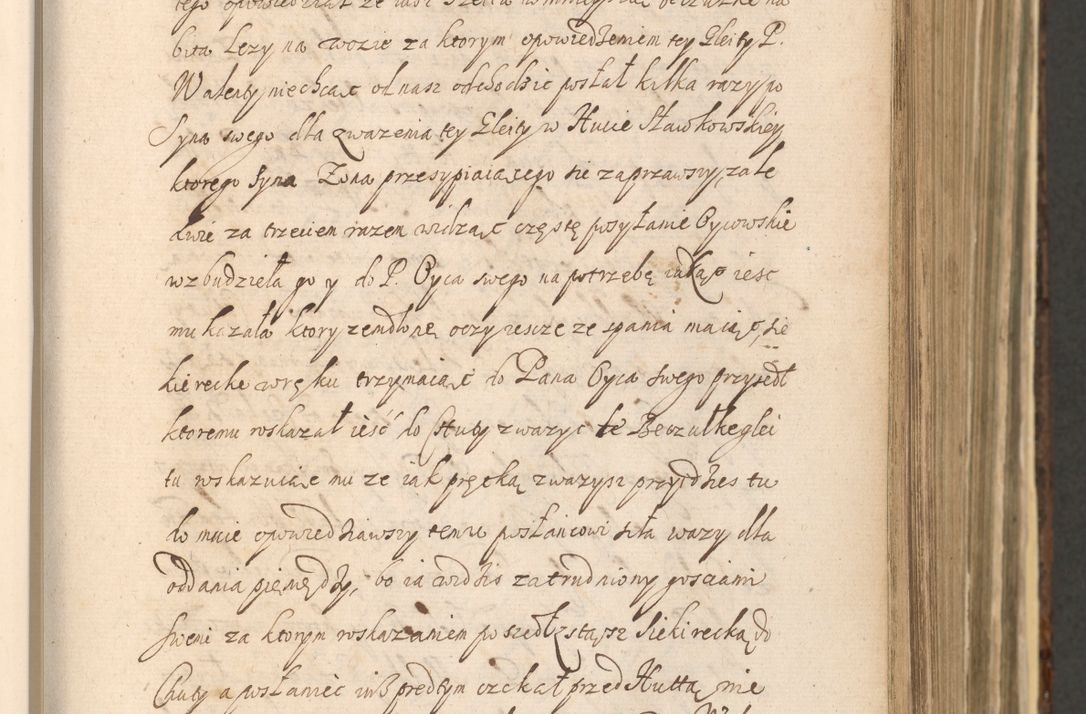 bita Lezy na wozie za ktorym opowiedzeniem tey Gleity P.
Walenty niechcąc od nasz odchodzic posłał kilka razy po
Syna swego dla zwazenia tey Gleity w Hucie Sławkowskiey
ktorego Syna Zona przesypiaiącego sie zaprzawszy, zale
dwie za trzeciem razem widząc częstę posyłanie Oycowskie
wzbudzieła go y do P. Oyca swego na potrzebę iakąs iesc
mu kazała ktory zemdlonę oczy iescze ze spania maiąc, sie
kiereckę wręku trzymaiąc do Pana Oyca swego przysedł
ktoremu roskazał iesć do Chuty zwazyc te Beczułkę glei
tu roskazuiąc mu ze iak prętką zwazysz przydzies tu
do mnie opowiedziawszy temu posłancowi siła wazy dla
oddania pieniędzy, bo ia widzis zatrudniony gosciami
swemi za ktorym roskazaniem poszedł stąsz Siekirecką do
Chuty a posłaniec insz predtym czekał przed Huttą nie